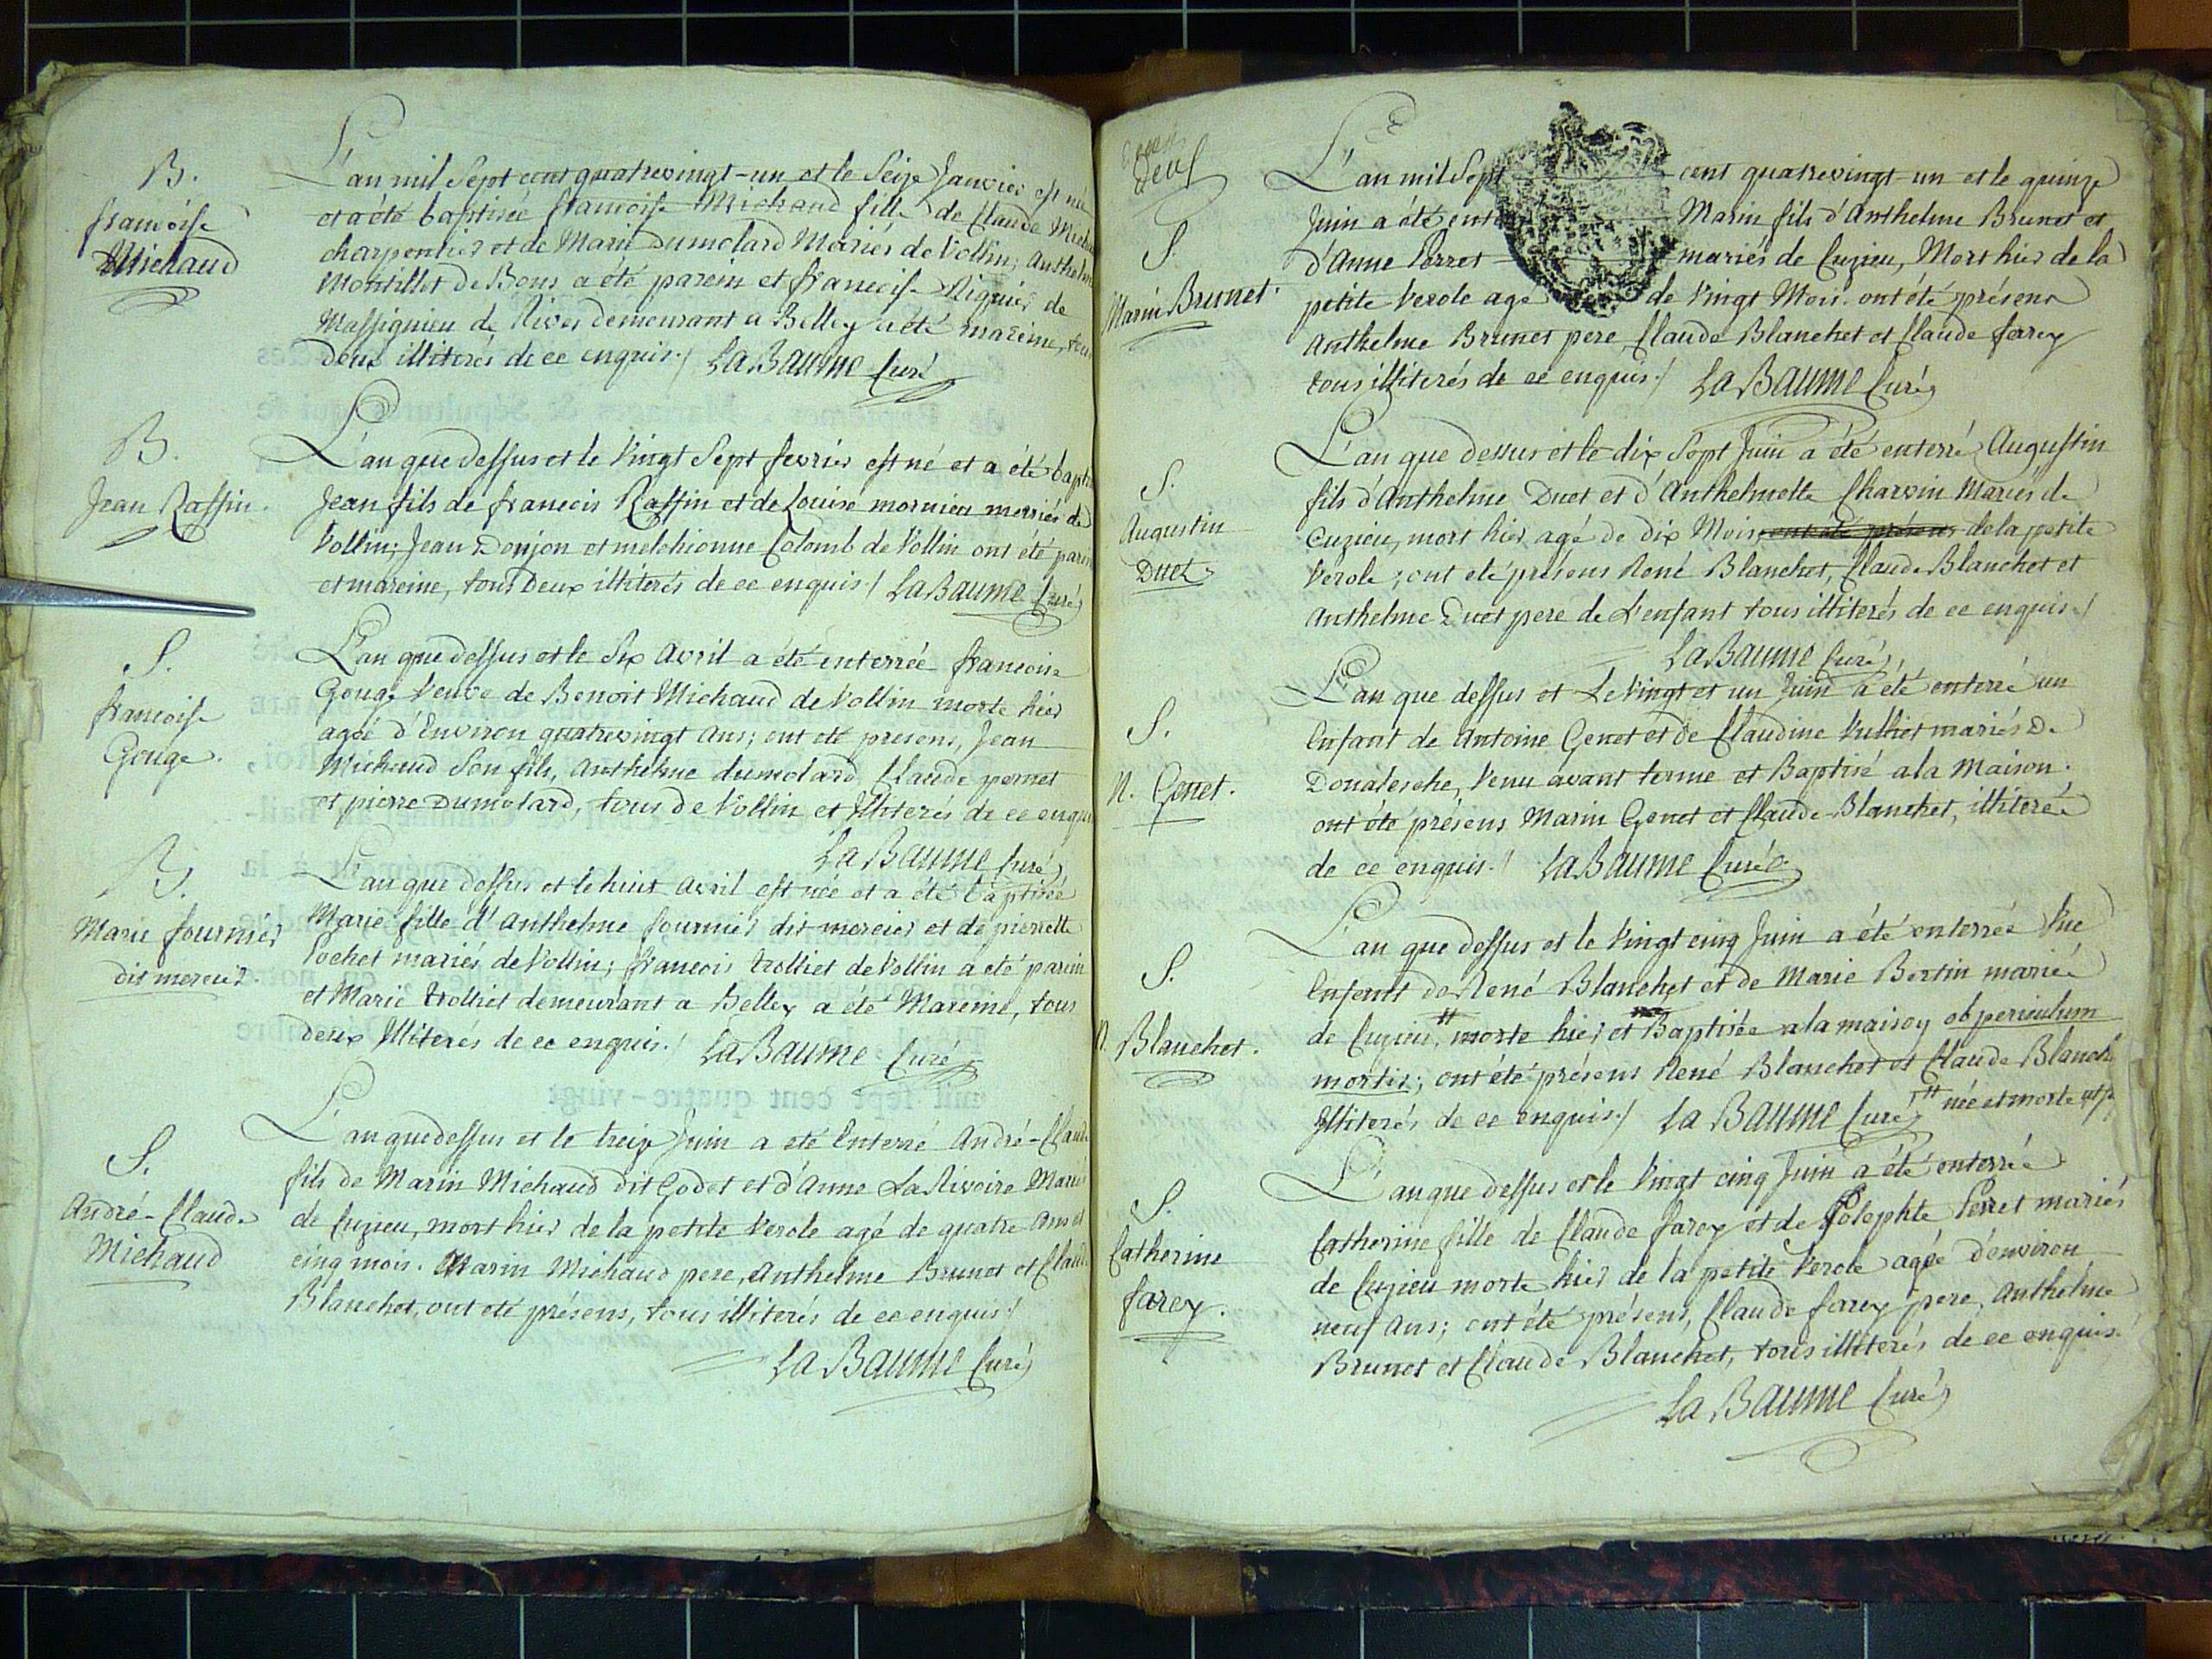 B.
francoise
Michaud
L'an mil Sept cent quatrevingt-un et le Seize Janvier est née
et a été baptisée francoise Michaud fille de Claude Michau
charpentier et de Marie Dumolard Mariés de Vollin; Anthelm
Montillet de Bons a été parein et francoise Riguier de
Massignieu de Rives demeurant a Belley a été mareine, tous
deux illiterés de ce enquis./ LaBaume Curé
B.
Jean Raffin.
L'an que dessus et le Vingt Sept fevrier est né et a été bapti
Jean fils de francois Raffin et de Louise mornieu mariés de
Vollin; Jean Donjon et melchionne Colomb de Vollin ont été parein
et mareine, tous Deux illiterés de ce enquis./ LaBaume Curé
S.
francoise
Gouge.
L'an que dessus et le Six avril a été enterrée francoise
Gouge Veuve de Benoit Michaud de Vollin morte hier
agée d'Environ quatrevingt ans; ont eté presens, Jean
Michaud Son fils, anthelme dumolard, Claude pernet
et pierre Dumolard, tous de Vollin et Illiterés de ce enqui
LaBaume Curé
B.
Marie fournier
dit mercier.
L'an que dessus et le huit avril est née et a été baptisée
Marie fille d'anthelme fournier dit mercier et de pierrette
Pochet mariés de Vollin; francois trolliet de Vollin a eté parein
et Marie trolliet demeurant a Belley a été Mareine, tous
deux Illiterés de ce enquis./ LaBaume Curé
S.
André-Claude
Michaud
L'an que dessus et le treize Juin a eté Enterré André-Claude
fils de Marin Michaud dit Godet et d'Anne LaRivoire Mariés
de Cuzieu, mort hier de la petite Verole agé de quatre ans et
cinq mois. Marin Michaud pere, Anthelme Brunet et Claude
Blanchet, ont eté présens, tous illiterés de ce enquis./
LaBaume Curé
Deux
S.
Marin Brunet.
L'an mil Sept cent quatrevingt-un et le quinze
Juin a été enterré Marin fils d'Anthelme Brunet et
d'Anne Perret mariés de Cuzieu, Mort hier de la
petite Verole age de Vingt Mois. ont été présens
Anthelme Brunet pere, Claude Blanchet et Claude farey
tous illiterés de ce enquis./ LaBaume Curé
S.
Augustin
Duet
L'an que dessus et le dix Sept Juin a été enterré Augustin
fils d'Anthelme Duet et d'Anthelmette Charvin Mariés de
Cuzieu, mort hier agé de dix Mois ont été présens de la petite
Verole; ont eté présens René Blanchet, Claude Blanchet et
Anthelme Duet pere de L'enfant tous illiterés de ce enquis./
LaBaume Curé
S.
N. Genet.
L'an que dessus et Le Vingt et un Juin a été enterré un
Enfant de Antoine Genet et de Claudine Vulliet mariés De
Donalesche, Venu avant terme et Baptisé a la Maison.
ont été présens Marin Genet et Claude Blanchet, illiterés
de ce enquis./ LaBaume Curé
S.
N. Blanchet.
L'an que dessus et le Vingt cinq Juin a été enterrée Une
Enfant de René Blanchet et de Marie Bertin mariés
de Cuzieu, # morte hier et Baptisée a la maison ob periculum
mortis; ont été présens René Blanchet et Claude Blanche
Illiterés de ce enquis./ LaBaume Curé # née et morte
S.
Catherine
farey.
L'an que dessus et le Vingt cinq Juin a été enterrée
Catherine fille de Claude farey et de Josephte Perret mariés
de Cuzieu morte hier de la petite Verole agée d'environ
neuf ans; ont été présens, Claude farey pere, Anthelme
Brunet et Claude Blanchet, tous illiterés de ce enquis./
LaBaume Curé